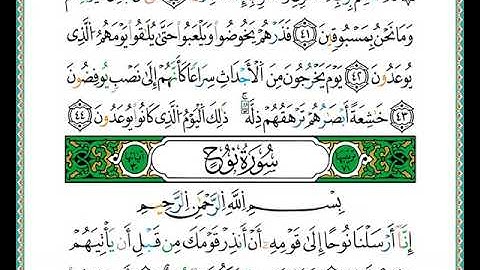 وَمَا نَحْنُ بِمَسْبُوقِينَ ٤١ فَذَرْهُمْ يَخُوضُوا وَيَلْعَبُوا حَتَّىٰ يُلَٰقُوا يَوْمَهُمُ الَّذِى
يُوعَدُونَ ٤٢ يَوْمَ يَخْرُجُونَ مِنَ الْأَجْدَاثِ سِرَاعًا كَأَنَّهُمْ إِلَىٰ نَصْبٍ يُوفِضُونَ
٤٣ خَٰشِعَةً أَبْصَٰرُهُمْ تَرْهَقُهُمْ ذِلَّةٌ ذَٰلِكَ الْيَوْمُ الَّذِى كَانُوا يُوعَدُونَ ٤٤
سُورَةُ نُوحٍ
بِسْمِ اللَّهِ الرَّحْمَٰنِ الرَّحِيمِ
إِنَّا أَرْسَلْنَا نُوحًا إِلَىٰ قَوْمِهِ أَنْ أَنذِرْ قَوْمَكَ مِن قَبْلِ أَن يَأْتِيَهُمْ